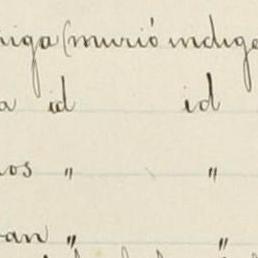 niga (murió indige
a id id
nos " "
van " "